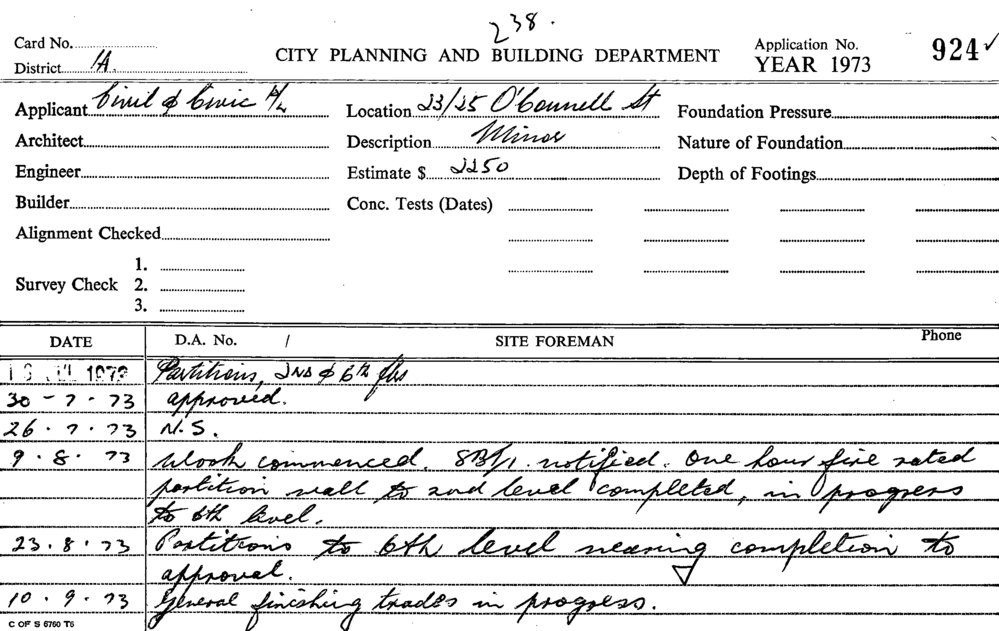 238.
Card No.
CITY PLANNING AND BUILDING DEPARTMENT
Application No. 924 ✓
District 1A.
YEAR 1973
Applicant Civil & Civic P/L
Location 23/25 O'Connell St
Foundation Pressure
Architect
Description Minor
Nature of Foundation
Engineer
Estimate $ 2250
Depth of Footings
Builder
Conc. Tests (Dates)
Alignment Checked
Survey Check 1.
2.
3.
DATE D.A. No. / SITE FOREMAN Phone
JUL 1973 Partitions, 2ND & 6th flrs
30-7-73 approved.
26.7.73 N.S.
9.8.73 Work commenced. notified. One hour fire rated
partition wall to 2nd level completed, in progress
to 6th level.
23.8.73 Partitions to 6th level nearing completion to
approval.
10.9.73 General finishing trades in progress.
C OF S 6760 T5